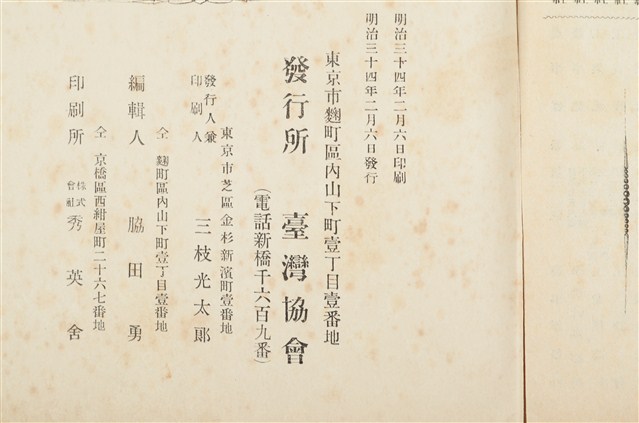 明治三十四年二月六日印刷
明治三十四年二月六日發行
東京市麴町區內山下町壹丁目壹番地
發行所 臺灣協會
(電話新橋千六百九番)
東京市芝區金杉新濱町壹番地
發行人兼印刷人 三枝光太郞
仝 麴町區內山下町壹丁目壹番地
編輯人 脇田勇
仝 京橋區西紺屋町二十六七番地
印刷所 株式會社秀英舍